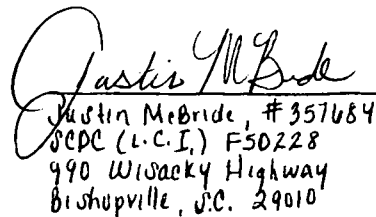 Justin McBride
Justin McBride, #357684
SCDC (L.C.I.) F50228
990 Wisacky Highway
Bishopville, S.C. 29010